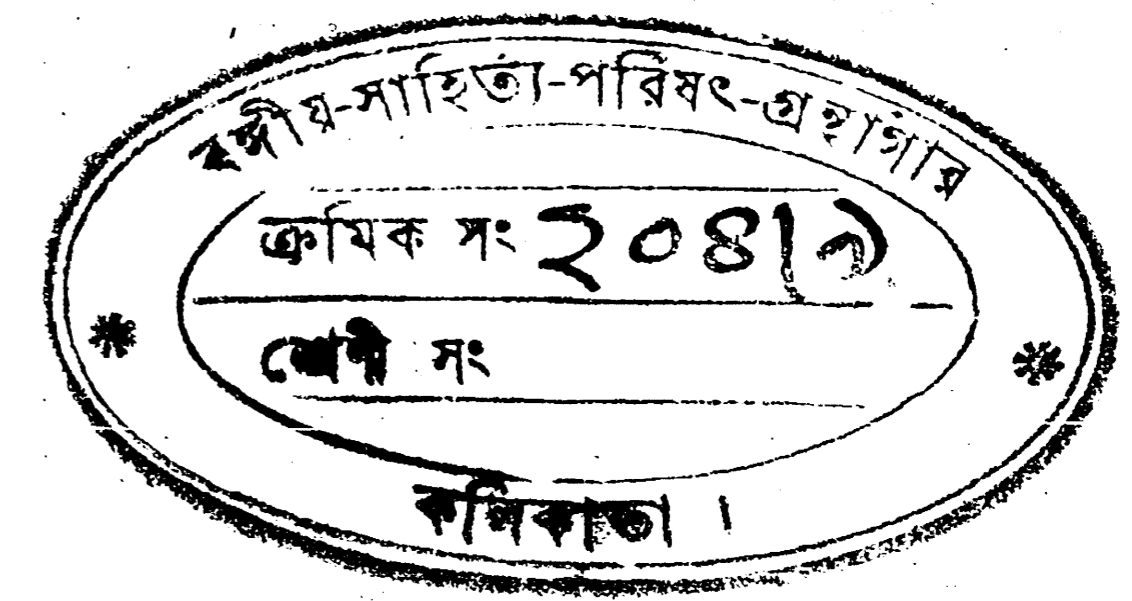 বঙ্গীয়-সাহিত্য-পরিষৎ-গ্রন্থাগার
ক্রমিক সং ২০৪|৯
শ্রেণী সং
কলিকাতা ।